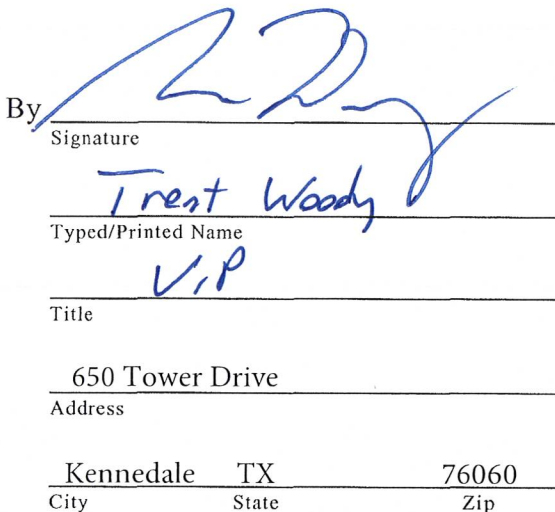 By
Signature
Trent Woody
Typed/Printed Name
V.P
Title
650 Tower Drive
Address
Kennedale TX 76060
City State Zip